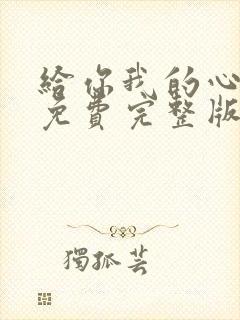 給你我的心
免費完整版
獨孤芸